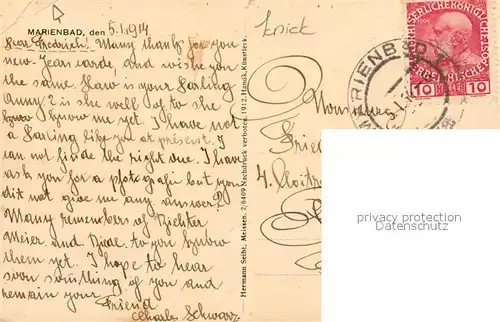 MARIENBAD, den 5.I.1914
Dear Fredrich! Many thanks for you
new-Years carde, and wish you
the same. Haw is your Darling
Anny? is she well of to she
know me yet. I have not
a Darling like you at présent. I
can not finde the right one. I have
ask you for a photografie but you
dit not give me any answer?
Many remembers of Richter
Meier and to you know
them yet. I hope to hear
soon somthing of you and
remain your
Friend
Charles Schwarz
Hermann Seibt, Meissen. 2/6409 Nachdruck verboten. 1912. Handk. Künstlerk.
knick
Monsieur
Frie
4. Cloitre
KAISERLICHE KÖNIGLICHE
ÖSTERREICHISCHE
10 HELLER 10
MARIENBAD
privacy protection
Datenschutz